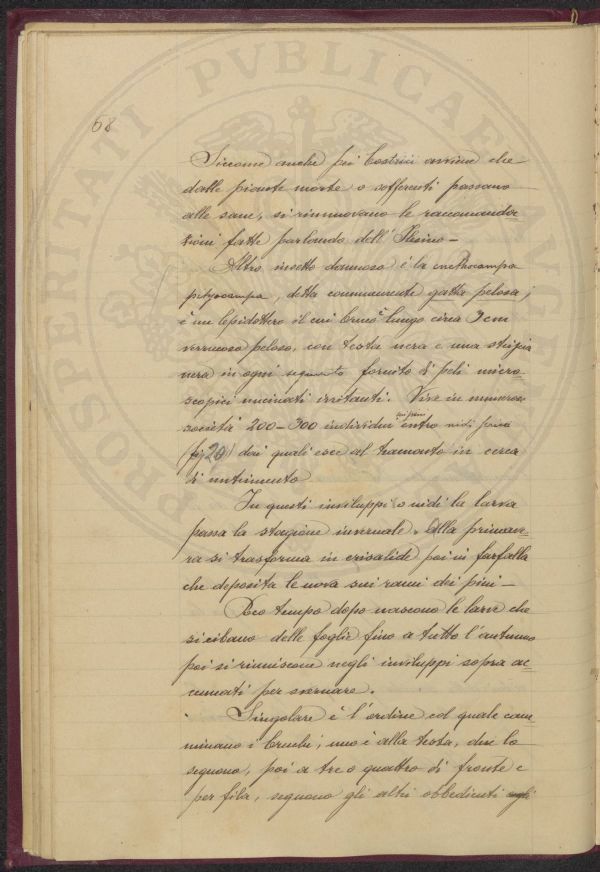 68
PROSPERITATI PVBLICAE
Siccome anche pei bostrici avviene che
dalle piante morte o sofferenti passano
alle sane, si rinnovano le raccomanda-
zioni fatte parlando dell'
Altro insetto dannoso è la cnethocampa
pityocampa, detta comunemente gatta pelosa;
è un lepidottero il cui bruco è lungo circa 3 cm
verrucoso peloso, con testa nera e una striscia
nera in ogni segmento fornito di peli micro-
scopici uncinati irritanti. Vive in numerose
società 200-300 individui entro nidi
(fig 20) dai quali esce al tramonto in cerca
di nutrimento
In questi inviluppi o nidi la larva
passa la stagione invernale. Alla primave-
ra si trasforma in crisalide poi in farfalla
che deposita le uova sui rami dei pini -
Poco tempo dopo nascono le larve che
si cibano delle foglie fino a tutto l'autunno
poi si riuniscono negli inviluppi sopra ac-
cennati per svernare.
Singolare è l'ordine col quale cam-
minano i bruchi; uno è alla testa, due lo
seguono, poi a tre o quattro di fronte e
per fila, seguono gli altri obbedienti